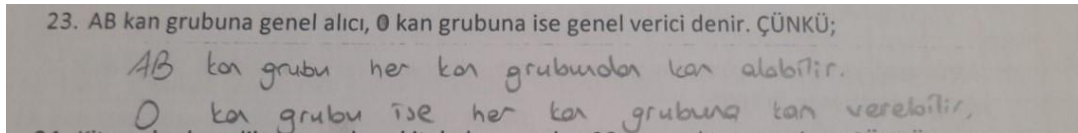 23. AB kan grubuna genel alıcı, 0 kan grubuna ise genel verici denir. ÇÜNKÜ;
AB kan grubu her kan grubundan kan alabilir.
O kan grubu ise her kan grubuna kan verebilir.